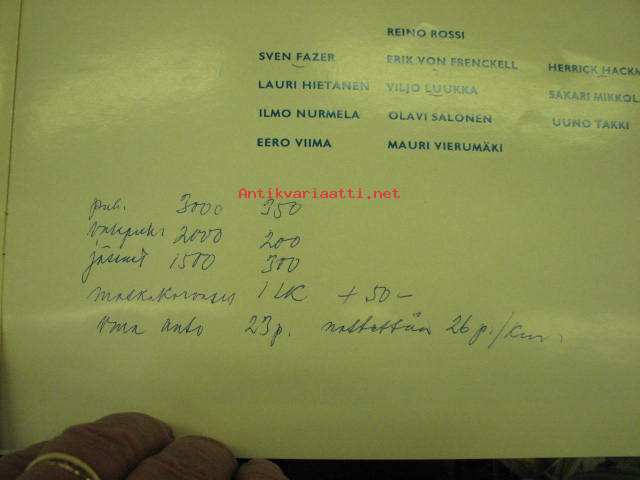 REINO ROSSI
SVEN FAZER ERIK VON FRENCKELL HERRICK HACKM
LAURI HIETANEN VILJO LUUKKA SAKARI MIKKOL
ILMO NURMELA OLAVI SALONEN UUNO TAKKI
EERO VIIMA MAURI VIERUMÄKI
Antikvariaatti.net
puh. 3000 350
varapuh. 2000 200
jäsenet 1500 300
matkakorvaus 1 LK + 50-
oma auto 23 p. 26 p./km